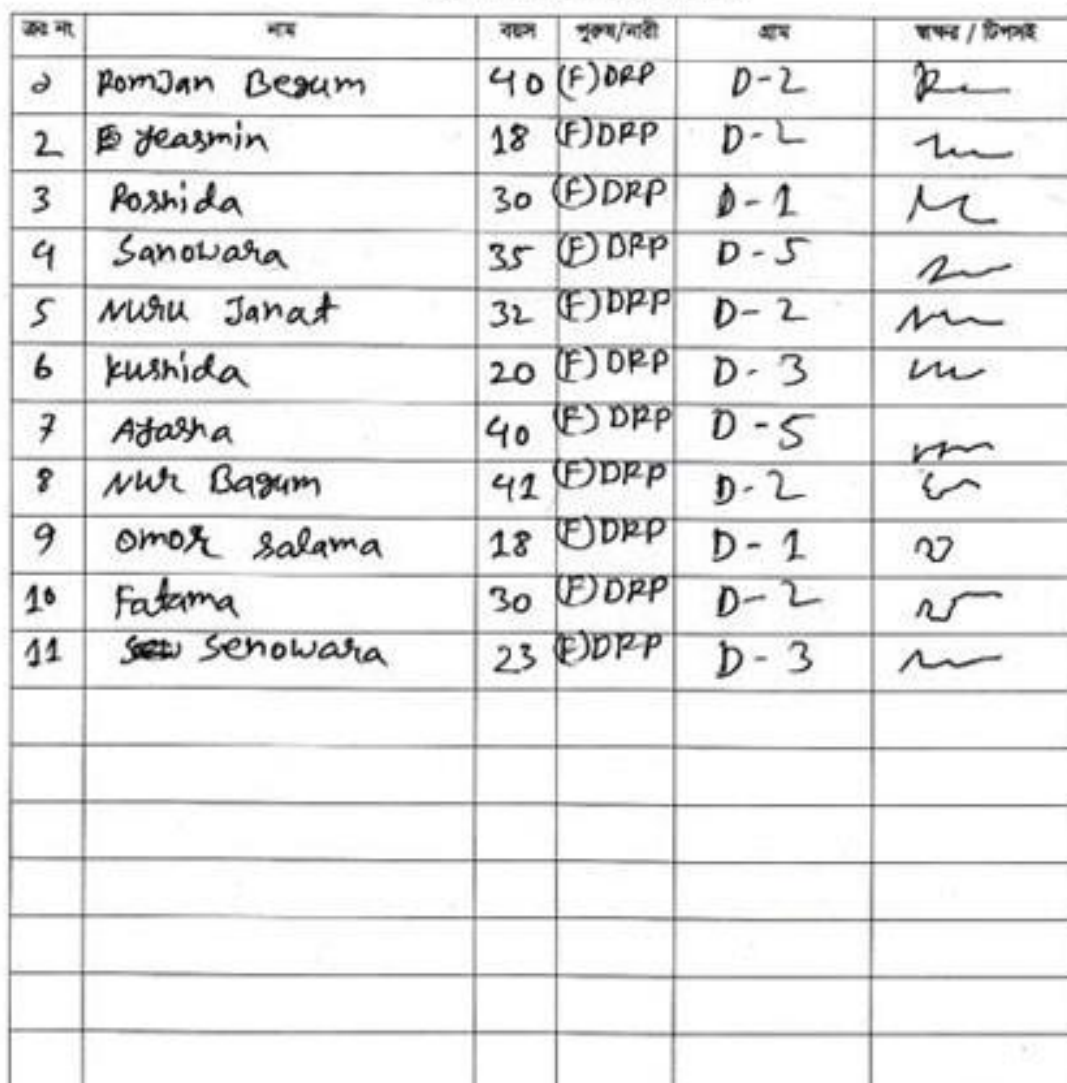 ক্রঃ নং নাম বয়স পুরুষ/নারী গ্রাম স্বাক্ষর / টিপসই
১ Romjan Begum 40 (F) DRP D-2
2 Yeasmin 18 (F) DRP D-2
3 Roshida 30 (F) DRP D-1
4 Sanowara 35 (F) DRP D-5
5 Nuru Janat 32 (F) DRP D-2
6 Kushida 20 (F) DRP D-3
7 Ayasha 40 (F) DRP D-5
8 Nur Bagum 41 (F) DRP D-2
9 Omor Salama 18 (F) DRP D-1
10 Fatama 30 (F) DRP D-2
11 Senowara 23 (F) DRP D-3